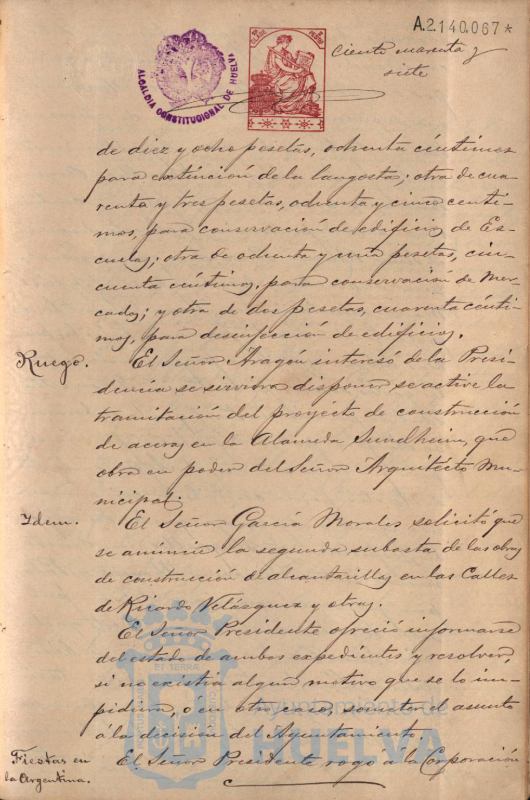 A.2.140.067*
ciento cuarenta y
siete
ALCALDIA CONSTITUCIONAL DE HUELVA
de diez y ocho pesetas, ochenta céntimos
para extinción de la langosta; otra de cua-
renta y tres pesetas, ochenta y cinco centi-
mos, para conservación de edificios de Es-
cuelas; otra de ochenta y una pesetas, cin-
cuenta céntimos, para conservación de Mer-
cados; y otra de dos pesetas, cuarenta cénti-
mos, para desinfección de edificios.
Ruego. El Señor Aragón interesó de la Presi-
dencia se sirviera disponer, se active la
tramitación del proyecto de construcción
de aceras en la Alameda Sundheim, que
obra en poder del Señor Arquitecto Mu-
nicipal.
Idem. El Señor García Morales solicitó que
se anuncie la segunda subasta de las obras
de construcción de alcantarillas en las Calles
de Ricardo Velázquez y otras.
El Señor Presidente ofreció informarse
del estado de ambos expedientes y resolver,
si no existia algun motivo que se lo im-
pidiera, o en otro caso, someter el asunto
á la decisión del Ayuntamiento.
Fiestas en
la Argentina. El Señor Presidente rogó a la Corporación
Ayuntamiento de
HUELVA